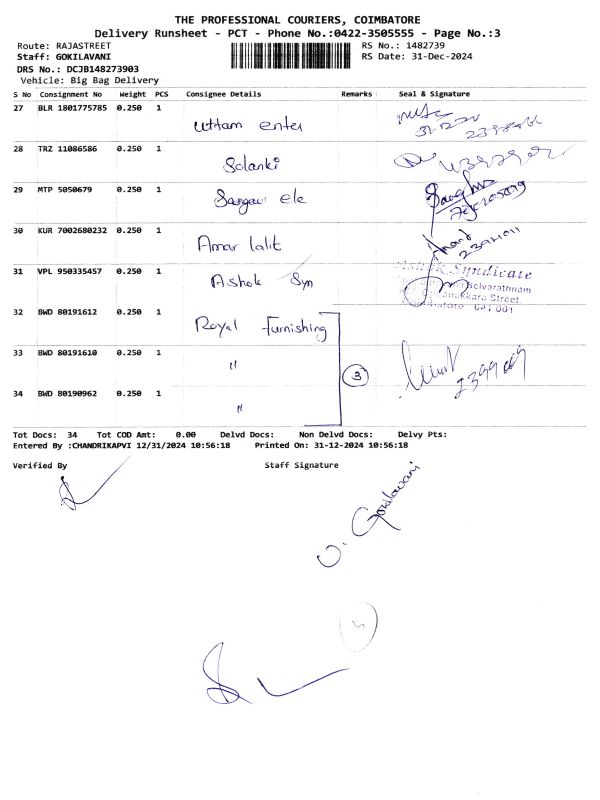 THE PROFESSIONAL COURIERS, COIMBATORE
Delivery Runsheet - PCT - Phone No.:0422-3505555 - Page No.:3
Route: RAJASTREET RS No.: 1482739
Staff: GOKILAVANI RS Date: 31-Dec-2024
DRS No.: DCJB148273903
Vehicle: Big Bag Delivery
S No Consignment No Weight PCS Consignee Details Remarks Seal & Signature
27 BLR 1801775785 0.250 1
Uttam enter
28 TRZ 11086586 0.250 1
Solanki
29 MTP 5050679 0.250 1
Sangavi ele
30 KUR 7002680232 0.250 1
Amar lalit
Anand
31 VPL 950335457 0.250 1
Syndicate
Ashok Syn
Selvarathnam
Street,
641 001
32 BWD 80191612 0.250 1
Royal Furnishing
33 BWD 80191610 0.250 1
"
3
34 BWD 80190962 0.250 1
"
Tot Docs: 34 Tot COD Amt: 0.00 Delvd Docs: Non Delvd Docs: Delvy Pts:
Entered By :CHANDRIKAPVI 12/31/2024 10:56:18 Printed On: 31-12-2024 10:56:18
Verified By Staff Signature
Gokilavani